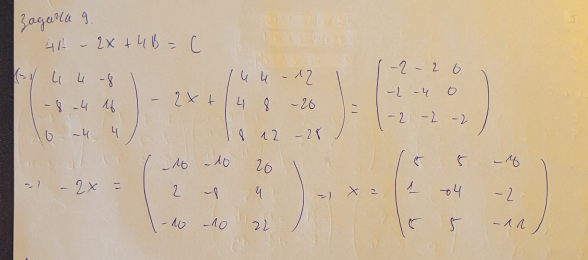 Задача 9.
4A - 2X + 4B = C
=> (4 4 -8; -8 -4 16; 0 -4 4) - 2X + (4 4 -12; 4 8 -20; 8 12 -28) = (-2 -2 0; -2 -4 0; -2 -2 -2)
=> -2X = (-10 -10 20; 2 -8 4; -10 -10 22) => X = (5 5 -10; 1 4 -2; 5 5 -11)